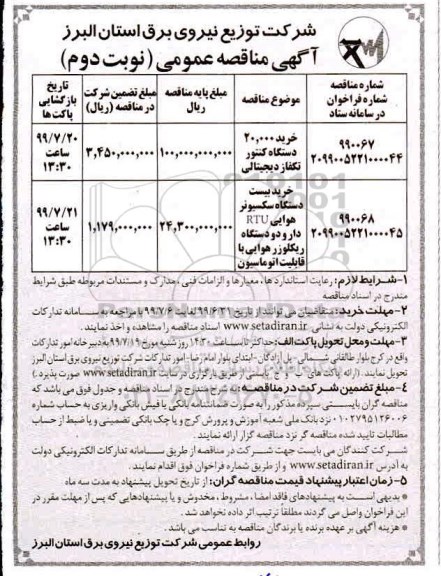 شرکت توزیع نیروی برق استان البرز
آگهی مناقصه عمومی (نوبت دوم)
شماره مناقصه شماره فراخوان در سامانه ستاد
موضوع مناقصه
مبلغ پایه مناقصه ریال
مبلغ تضمین شرکت در مناقصه (ریال)
تاریخ بازگشایی پاکت ها
۹۹۰۰۶۷
۲۰۹۹۰۰۵۲۲۱۰۰۰۰۴۴
خرید ۲۰,۰۰۰ دستگاه کنتور تکفاز دیجیتالی
۱۰۰,۰۰۰,۰۰۰,۰۰۰
۳,۴۵۰,۰۰۰,۰۰۰
۹۹/۷/۲۰ ساعت ۱۳:۳۰
۹۹۰۰۶۸
۲۰۹۹۰۰۵۲۲۱۰۰۰۰۴۵
خرید بیست دستگاه سکسیونر هوایی RTU دار و دو دستگاه ریکلوزر هوایی با قابلیت اتوماسیون
۲۴,۳۰۰,۰۰۰,۰۰۰
۱,۱۷۹,۰۰۰,۰۰۰
۹۹/۷/۲۱ ساعت ۱۳:۳۰
۱-شرایط لازم: رعایت استانداردها، معیارها و الزامات فنی، مدارک و مستندات مربوطه طبق شرایط
مندرج در اسناد مناقصه
۲-مهلت خرید: متقاضیان می توانند از تاریخ ۹۹/۶/۳۱ لغایت ۹۹/۷/۶ با مراجعه به سامانه تدارکات
الکترونیکی دولت به نشانی www.setadiran.ir اسناد مناقصه را مشاهده و اخذ نمایند.
۳-مهلت و محل تحویل پاکت الف: حداکثر تا ساعت ۱۴:۳۰ روز شنبه مورخ ۹۹/۷/۱۹ به دبیرخانه امور تدارکات
واقع در کرج بلوار طالقانی شمالی- پل آزادگان- ابتدای بلوار امام رضا- امور تدارکات شرکت توزیع نیروی برق استان البرز
تحویل نمایند. (ارائه پاکت های الف و ب و ج بایستی از طریق بارگزاری در سایت www.setadiran.ir صورت پذیرد.)
۴-مبلغ تضمین شرکت در مناقصه: به شرح مندرج در اسناد مناقصه و جدول فوق می باشد که
مناقصه گران بایستی سپرده مذکور را به صورت ضمانتنامه بانکی یا فیش بانکی واریزی به حساب شماره
۰۱۰۲۷۹۵۱۲۶۰۰۶ نزد بانک ملی شعبه آموزش و پرورش کرج و یا چک بانکی تضمینی و یا ضبط از حساب
مطالبات تایید شده مناقصه گر نزد مناقصه گزار ارائه نمایند.
شرکت کنندگان می بایست جهت شرکت در مناقصه از طریق سامانه تدارکات الکترونیکی دولت
به آدرس www.setadiran.ir و از طریق شماره فراخوان فوق اقدام نمایند.
۵- زمان اعتبار پیشنهاد قیمت مناقصه گران: از تاریخ تحویل پیشنهاد به مدت سه ماه
* بدیهی است به پیشنهادهای فاقد امضا، مشروط، مخدوش و یا پیشنهادهایی که پس از مهلت مقرر در
این فراخوان واصل می گردند مطلقا ترتیب اثر داده نخواهد شد.
* هزینه آگهی بر عهده برنده یا برندگان مناقصه به تناسب می باشد.
روابط عمومی شرکت توزیع نیروی برق استان البرز